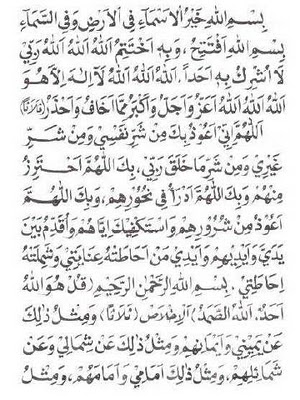 بِسْمِ اللهِ اللهِ خَيْرُ الْاَسْمَآءِ فِى الْاَرْضِ وَفِى السَّمَآءِ
بِسْمِ اللهِ اَفْتَتِحُ، وَبِهٖ اَخْتَتِمُ اَللهُ اَللهُ اَللهُ رَبِّيْ
لَآ اُشْرِكُ بِهٖ اَحَدًا. اَللهُ اَللهُ اَللهُ لَآ اِلٰهَ اِلَّا هُوَ
اَللهُ اَللهُ اَللهُ اَعَزُّ وَاَجَلُّ وَاَكْبَرُ مِمَّا اَخَافُ وَاَحْذَرُ (ثَلَاثًا)
اَللّٰهُمَّ اِنِّيْ اَعُوْذُ بِكَ مِنْ شَرِّ نَفْسِيْ وَمِنْ شَرِّ
غَيْرِيْ وَمِنْ شَرِّ مَا خَلَقَ رَبِّيْ، بِكَ اللّٰهُمَّ اَحْتَرِزُ
مِنْهُمْ وَبِكَ اللّٰهُمَّ اَدْرَأُ فِيْ نُحُوْرِهِمْ، وَبِكَ اللّٰهُمَّ
اَعُوْذُ مِنْ شُرُوْرِهِمْ وَاَسْتَكْفِيْكَ اِيَّاهُمْ وَاُقَدِّمُ بَيْنَ
يَدَيَّ وَاَيْدِيْهِمْ وَاَيْدِيْ مَنْ اَحَاطَتْهُ عِنَايَتِيْ وَشَمِلَتْهُ
اِحَاطَتِيْ. بِسْمِ اللهِ الرَّحْمٰنِ الرَّحِيْمِ (قُلْ هُوَ اللهُ
اَحَدٌ. اَللهُ الصَّمَدُ) اَلْاِخْلَاصُ (ثَلَاثًا) وَمِثْلُ ذٰلِكَ
عَنْ يَمِيْنِيْ وَاَيْمَانِهِمْ وَمِثْلُ ذٰلِكَ عَنْ شِمَالِيْ وَعَنْ
شَمَائِلِهِمْ، وَمِثْلُ ذٰلِكَ اَمَامِيْ وَاَمَامَهُمْ، وَمِثْلُ